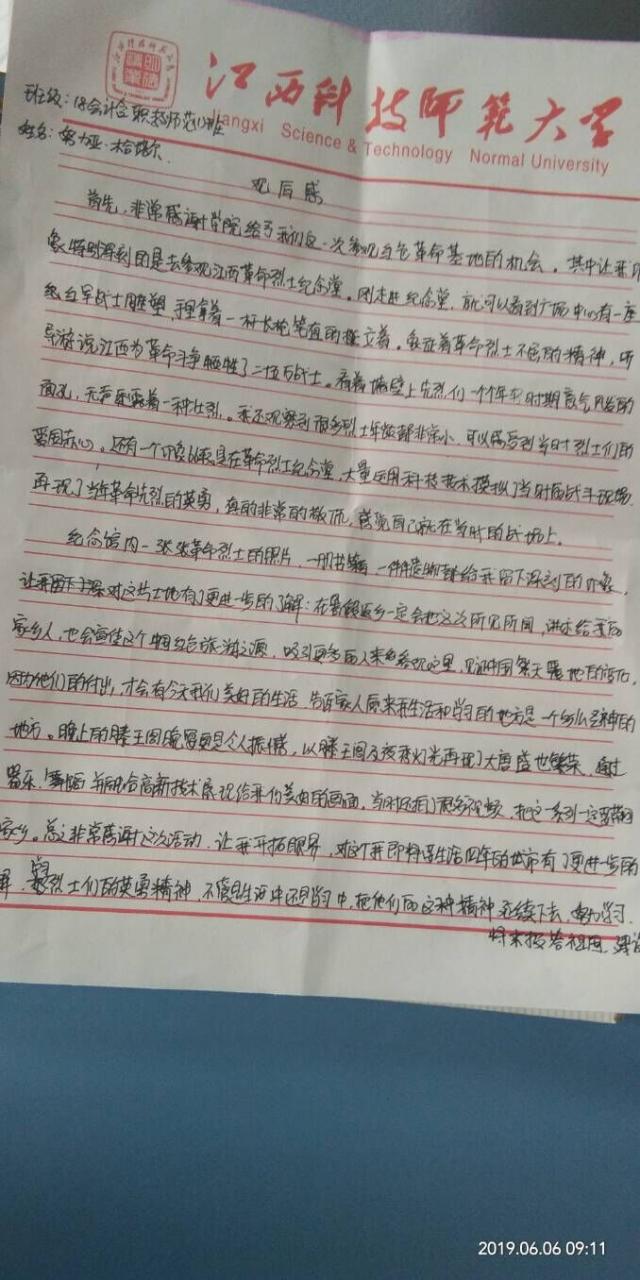 江西科技师范大学
Jiangxi Science & Technology Normal University
班级：18会计合职教师范(1)班
姓名：努力亚·哈
观后感
首先，非常感谢学院给予我们这一次参观红色革命基地的机会。其中让我印
象特别深刻的是去参观江西革命烈士纪念堂。刚走进纪念堂，就可以看到广场中心有一座
红军战士雕塑，手里拿着一杆长枪笔直的挺立着。象征着革命烈士不屈的精神，听
导游说江西为革命斗争牺牲了二十五万战士。看着墙壁上先烈们一个个年轻时期意气风发的
面孔，无声透露着一种壮烈。我还观察到很多烈士年龄都非常小，可以感受到当时烈士们的
爱国衷心。还有一个印象就是在革命烈士纪念堂，大量运用科技技术模拟了当时的战斗现场，
再现了当年革命先烈的英勇，真的非常的敬佩，感觉自己就在当时的战场上。
纪念馆内一张张革命烈士的照片，一册书籍，一件件都给我留下深刻的印象，
让我对这片土地有了更进一步的了解：在暑假返乡一定会把这次所见所闻，讲述给我的
家乡人，也会宣传这个中国红色旅游之源，吸引更多的人来参观这里，见证中国翻天覆地的变化，
因为他们的付出，才会有今天我们美好的生活，告诉家人原来我生活和学习的地方是一个多么的
地方。晚上的滕王阁晚宴更是令人振憾，以滕王阁及夜景灯光再现了大唐盛世繁荣，通过
器乐，舞蹈并配合高新技术展现给我们美好的画面，当时还拍了很多视频，把这一系列一定要带回
家乡。总之非常感谢这次活动，让我开拓眼界，对这个我即将要生活四年的城市有了更进一步的
解，烈士们的英勇精神，不管是生活中还是学习中，把他们的这种精神延续下去，努力学习，
将来报答祖国，建设
2019.06.06 09:11